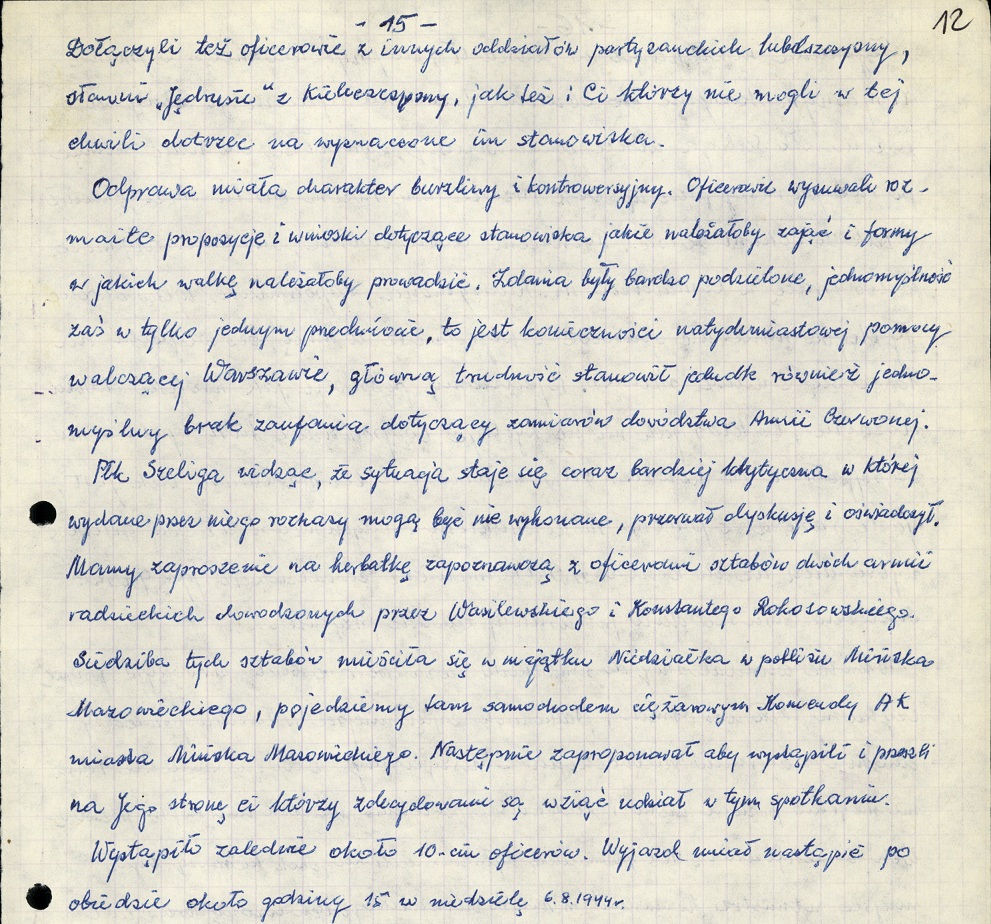 - 15 -
12
Dołączyli też oficerowie z innych oddziałów partyzanckich lubelszczyzny,
sławni „Jędrusie" z Kielecczyzny, jak też i Ci którzy nie mogli w tej
chwili dotrzec na wyznaczone im stanowiska.
Odprawa miała charakter burzliwy i kontrowersyjny. Oficerowie wysuwali roz-
maite propozycje i wnioski dotyczące stanowiska jakie należałoby zająć i formy
w jakich walkę należałoby prowadzić. Zdania były bardzo podzielone, jednomyślność
zaś w tylko jednym przedmiocie, to jest konieczności natychmiastowej pomocy
walczącej Warszawie, główną trudność stanowił jednak również jedno-
myślny brak zaufania dotyczący zamiarów dowództwa Armii Czerwonej.
Płk Szeliga widząc, że sytuacja staje się coraz bardziej krytyczna w której
wydane przez niego rozkazy mogą być nie wykonane, przerwał dyskusję i oświadczył.
Mamy zaproszenie na herbatkę zapoznawczą z oficerami sztabów dwóch armii
radzieckich dowodzonych przez Wasilewskiego i Konstantego Rokosowskiego.
Siedziba tych sztabów mieściła się w majątku Niedziałka w pobliżu Mińska
Mazowieckiego, pojedziemy tam samochodem ciężarowym Komendy AK
miasta Mińska Mazowieckiego. Następnie zaproponował aby wystąpili i przeszli
na Jego stronę ci którzy zdecydowani są wziąć udział w tym spotkaniu.
Wystąpiło zaledwie około 10-ciu oficerów. Wyjazd miał nastąpić po
obiedzie około godziny 15 w niedzielę 6.8.1944r.